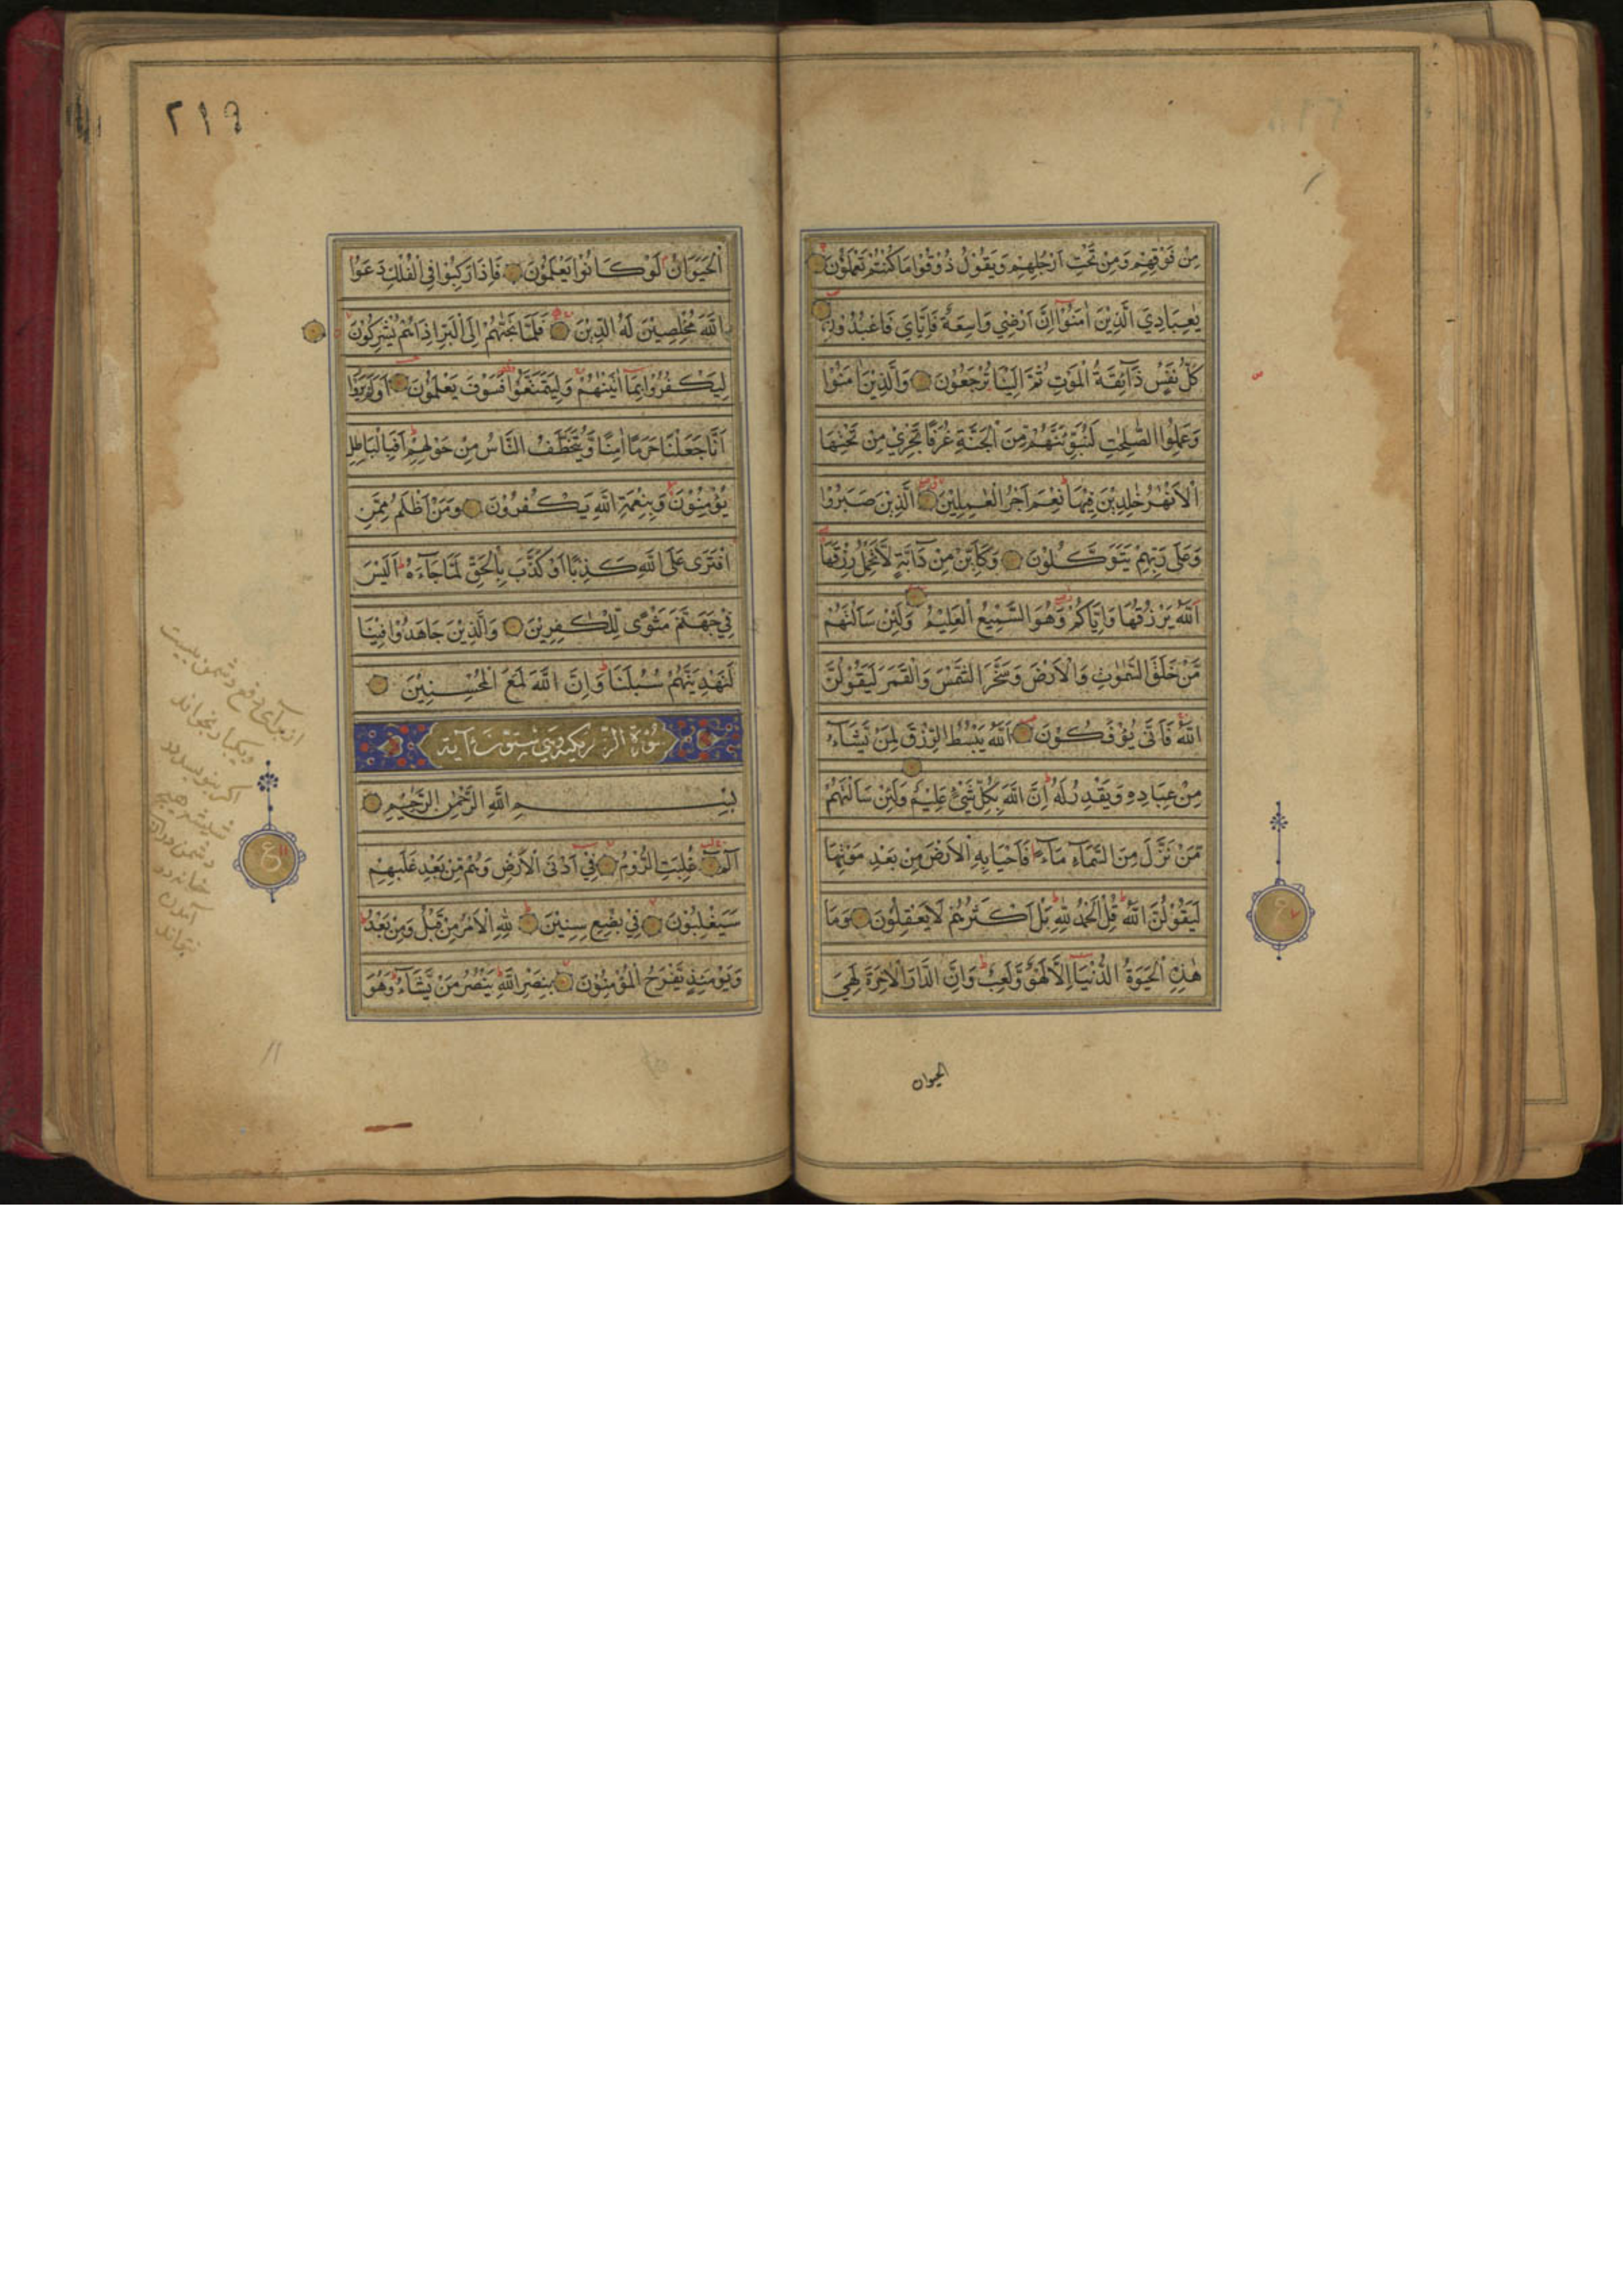 مِنْ فَوْقِهِمْ وَمِنْ تَحْتِ اَرْجُلِهِمْ وَيَقُوْلُ ذُوْقُوْا مَا كُنْتُمْ تَعْمَلُوْنَ
يٰعِبَادِيَ الَّذِيْنَ اٰمَنُوْٓا اِنَّ اَرْضِيْ وَاسِعَةٌ فَاِيَّايَ فَاعْبُدُوْنِ
كُلُّ نَفْسٍ ذَآئِقَةُ الْمَوْتِ ثُمَّ اِلَيْنَا تُرْجَعُوْنَ وَالَّذِيْنَ اٰمَنُوْا
وَعَمِلُوا الصّٰلِحٰتِ لَنُبَوِّئَنَّهُمْ مِّنَ الْجَنَّةِ غُرَفًا تَجْرِيْ مِنْ تَحْتِهَا
الْاَنْهٰرُ خٰلِدِيْنَ فِيْهَا نِعْمَ اَجْرُ الْعٰمِلِيْنَ الَّذِيْنَ صَبَرُوْا
وَعَلٰى رَبِّهِمْ يَتَوَكَّلُوْنَ وَكَاَيِّنْ مِنْ دَآبَّةٍ لَّا تَحْمِلُ رِزْقَهَا
اَللّٰهُ يَرْزُقُهَا وَاِيَّاكُمْ وَهُوَ السَّمِيْعُ الْعَلِيْمُ وَلَئِنْ سَاَلْتَهُمْ
مَّنْ خَلَقَ السَّمٰوٰتِ وَالْاَرْضَ وَسَخَّرَ الشَّمْسَ وَالْقَمَرَ لَيَقُوْلُنَّ
اللّٰهُ فَاَنّٰى يُؤْفَكُوْنَ اَللّٰهُ يَبْسُطُ الرِّزْقَ لِمَنْ يَّشَآءُ
مِنْ عِبَادِهٖ وَيَقْدِرُ لَهٗ اِنَّ اللّٰهَ بِكُلِّ شَيْءٍ عَلِيْمٌ وَلَئِنْ سَاَلْتَهُمْ
مَّنْ نَّزَّلَ مِنَ السَّمَآءِ مَآءً فَاَحْيَا بِهِ الْاَرْضَ مِنْ بَعْدِ مَوْتِهَا
لَيَقُوْلُنَّ اللّٰهُ قُلِ الْحَمْدُ لِلّٰهِ بَلْ اَكْثَرُهُمْ لَا يَعْقِلُوْنَ وَمَا
هٰذِهِ الْحَيٰوةُ الدُّنْيَآ اِلَّا لَهْوٌ وَّلَعِبٌ وَاِنَّ الدَّارَ الْاٰخِرَةَ لَهِيَ
الحيوان
ع
٢١٩
الْحَيَوَانُ لَوْ كَانُوْا يَعْلَمُوْنَ فَاِذَا رَكِبُوْا فِي الْفُلْكِ دَعَوُا
اللّٰهَ مُخْلِصِيْنَ لَهُ الدِّيْنَ فَلَمَّا نَجّٰىهُمْ اِلَى الْبَرِّ اِذَا هُمْ يُشْرِكُوْنَ
لِيَكْفُرُوْا بِمَآ اٰتَيْنٰهُمْ وَلِيَتَمَتَّعُوْا فَسَوْفَ يَعْلَمُوْنَ اَوَلَمْ يَرَوْا
اَنَّا جَعَلْنَا حَرَمًا اٰمِنًا وَّيُتَخَطَّفُ النَّاسُ مِنْ حَوْلِهِمْ اَفَبِالْبَاطِلِ
يُؤْمِنُوْنَ وَبِنِعْمَةِ اللّٰهِ يَكْفُرُوْنَ وَمَنْ اَظْلَمُ مِمَّنِ
افْتَرٰى عَلَى اللّٰهِ كَذِبًا اَوْ كَذَّبَ بِالْحَقِّ لَمَّا جَآءَهٗ اَلَيْسَ
فِيْ جَهَنَّمَ مَثْوًى لِّلْكٰفِرِيْنَ وَالَّذِيْنَ جَاهَدُوْا فِيْنَا
لَنَهْدِيَنَّهُمْ سُبُلَنَا وَاِنَّ اللّٰهَ لَمَعَ الْمُحْسِنِيْنَ
سُوْرَةُ الرّوم مكية وهي ستون آية
بِسْمِ اللّٰهِ الرَّحْمٰنِ الرَّحِيْمِ
الٓمٓ غُلِبَتِ الرُّوْمُ فِيْٓ اَدْنَى الْاَرْضِ وَهُمْ مِّنْ بَعْدِ غَلَبِهِمْ
سَيَغْلِبُوْنَ فِيْ بِضْعِ سِنِيْنَ لِلّٰهِ الْاَمْرُ مِنْ قَبْلُ وَمِنْ بَعْدُ
وَيَوْمَئِذٍ يَّفْرَحُ الْمُؤْمِنُوْنَ بِنَصْرِ اللّٰهِ يَنْصُرُ مَنْ يَّشَآءُ وَهُوَ
از برای دفع دشمن
بخواند
اگر بنویسد و در
دشمن در آن
خانه در
آمدن
نتواند
ع